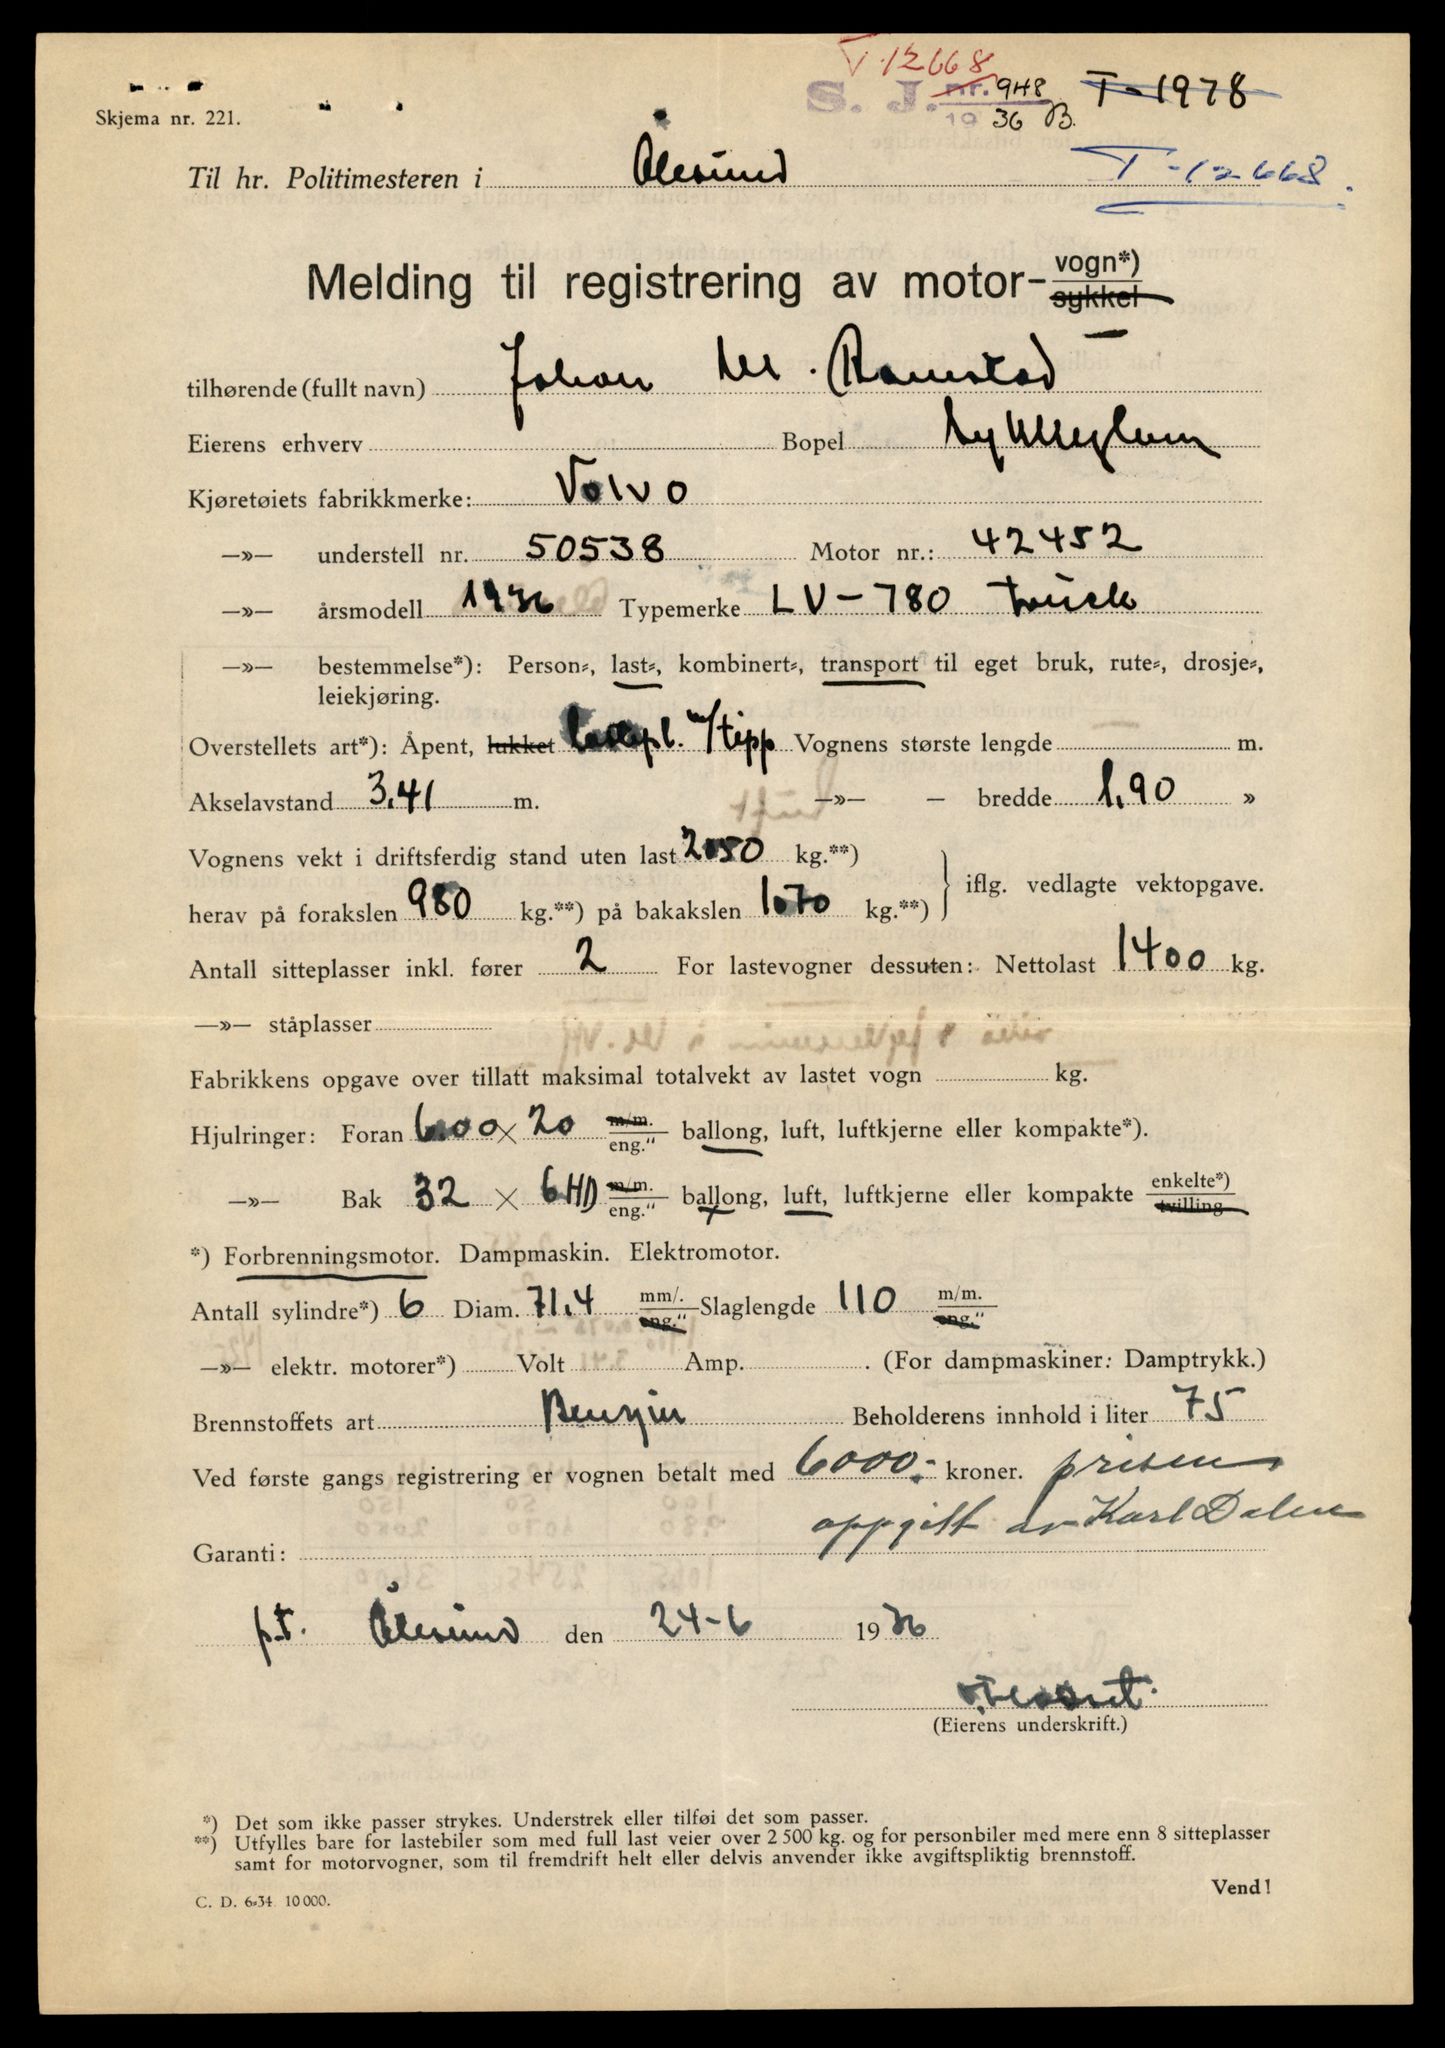 T-12668
S. J. nr. 948 T-1978
19 36 B.
Skjema nr. 221.
Til hr. Politimesteren i Ålesund T-12668.
Melding til registrering av motor- vogn*)
sykkel
tilhørende (fullt navn) Johan M. Ramstad
Eierens erhverv Bopel
Kjøretøiets fabrikkmerke: Volvo
—»— understell nr. 50538 Motor nr.: 42452
—»— årsmodell 1936 Typemerke LV-780 truck
—»— bestemmelse*): Person-, last-, kombinert-, transport til eget bruk, rute-, drosje-,
leiekjøring.
Overstellets art*): Åpent, lukket lastepl. m/tipp Vognens største lengde m.
Akselavstand 3,41 m. —»— — bredde 1,90 »
Vognens vekt i driftsferdig stand uten last 2050 kg.**)
herav på forakslen 980 kg.**) på bakakslen 1070 kg.**) iflg. vedlagte vektopgave.
Antall sitteplasser inkl. fører 2 For lastevogner dessuten: Nettolast 1400 kg.
—»— ståplasser
Fabrikkens opgave over tillatt maksimal totalvekt av lastet vogn kg.
Hjulringer: Foran 6.00 × 20 m/m. eng." ballong, luft, luftkjerne eller kompakte*).
—»— Bak 32 × 6 HD m/m. eng." ballong, luft, luftkjerne eller kompakte enkelte*) tvilling
*) Forbrenningsmotor. Dampmaskin. Elektromotor.
Antall sylindre*) 6 Diam. 71,4 mm/. eng." Slaglengde 110 m/m. eng."
—»— elektr. motorer*) Volt Amp. . (For dampmaskiner: Damptrykk.)
Brennstoffets art Benzin Beholderens innhold i liter 75
Ved første gangs registrering er vognen betalt med 6000:- kroner. prisen
oppgitt av Karl Dalen
Garanti:
p.t. Ålesund den 24-6 1936
(Eierens underskrift.)
*) Det som ikke passer strykes. Understrek eller tilføi det som passer.
**) Utfylles bare for lastebiler som med full last veier over 2 500 kg. og for personbiler med mere enn 8 sitteplasser
samt for motorvogner, som til fremdrift helt eller delvis anvender ikke avgiftspliktig brennstoff.
Vend!
C. D. 6-34 10 000.